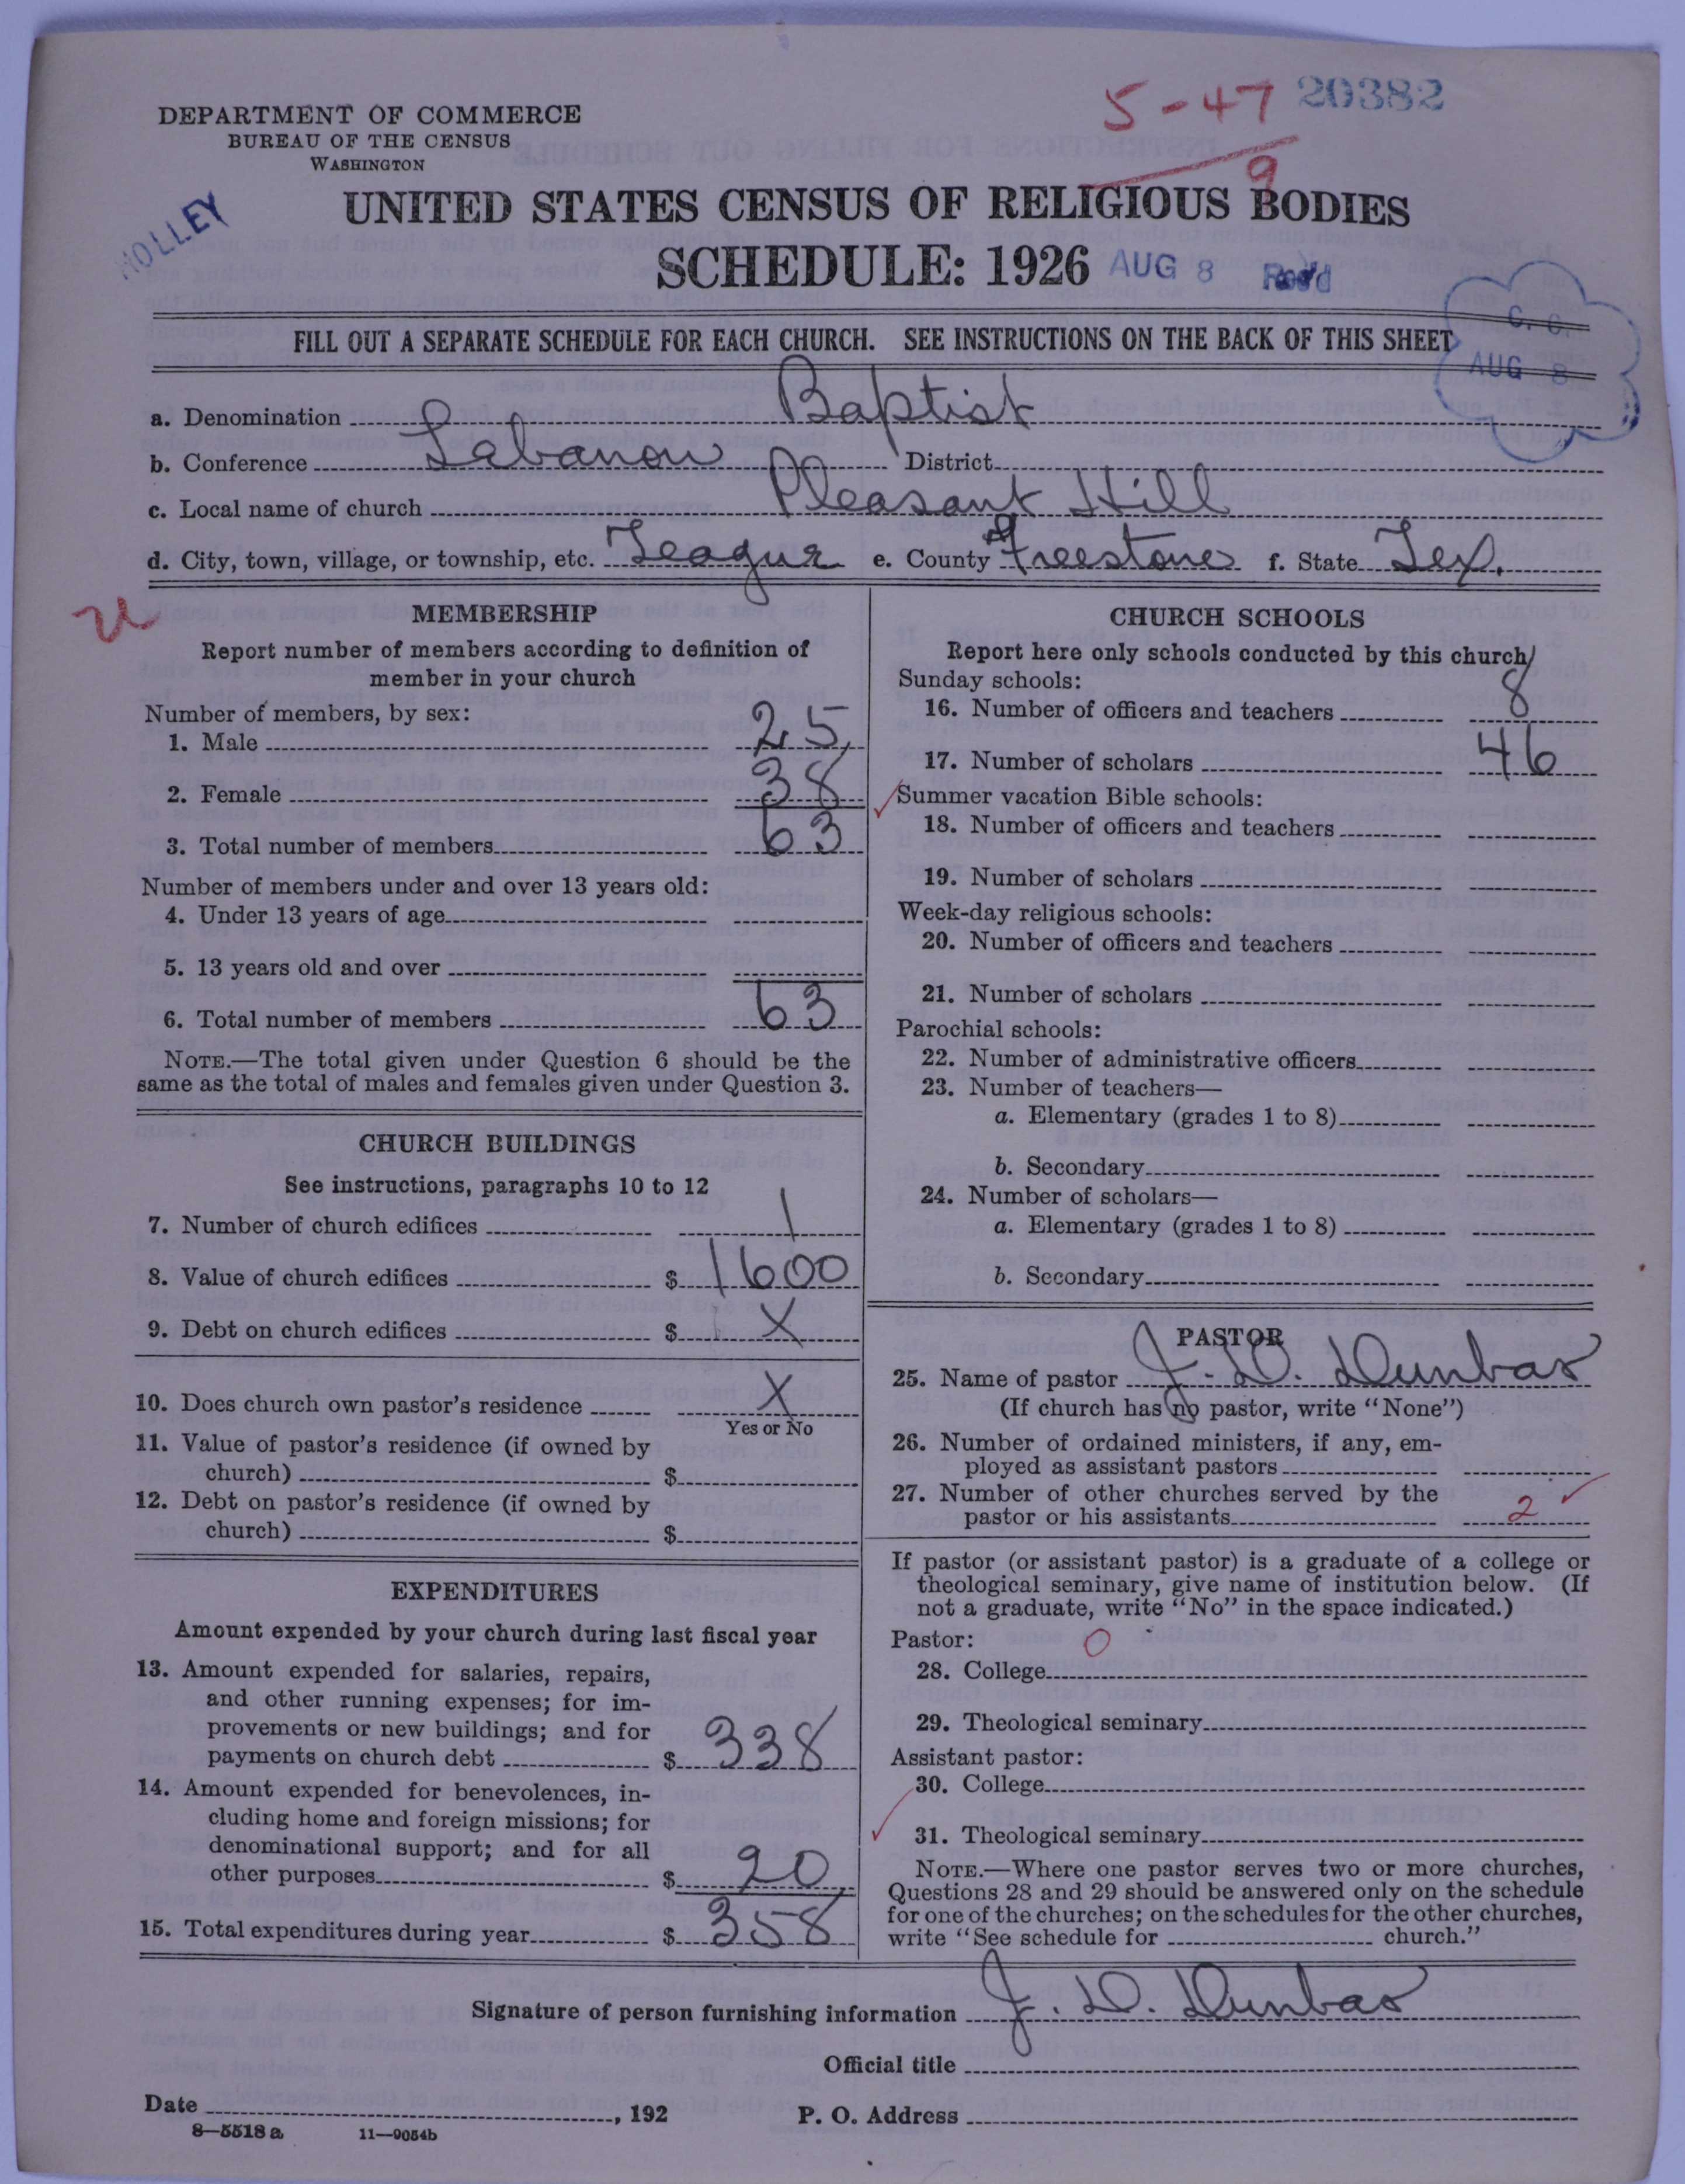 5-47 20382
9
DEPARTMENT OF COMMERCE
BUREAU OF THE CENSUS
WASHINGTON
HOLLEY
UNITED STATES CENSUS OF RELIGIOUS BODIES
SCHEDULE: 1926 AUG 8 Rec'd
FILL OUT A SEPARATE SCHEDULE FOR EACH CHURCH. SEE INSTRUCTIONS ON THE BACK OF THIS SHEET
C. C.
AUG 8
a. Denomination Baptist
b. Conference Labanon District
c. Local name of church Pleasant Hill
d. City, town, village, or township, etc. Teague e. County Freestone f. State Tex.
u
MEMBERSHIP
Report number of members according to definition of
member in your church
Number of members, by sex:
1. Male 25
2. Female 38
3. Total number of members 63
Number of members under and over 13 years old:
4. Under 13 years of age
5. 13 years old and over
6. Total number of members 63
NOTE.—The total given under Question 6 should be the
same as the total of males and females given under Question 3.
CHURCH BUILDINGS
See instructions, paragraphs 10 to 12
7. Number of church edifices 1
8. Value of church edifices $ 1600
9. Debt on church edifices $ X
10. Does church own pastor's residence X
Yes or No
11. Value of pastor's residence (if owned by
church) $
12. Debt on pastor's residence (if owned by
church) $
EXPENDITURES
Amount expended by your church during last fiscal year
13. Amount expended for salaries, repairs,
and other running expenses; for im-
provements or new buildings; and for
payments on church debt $ 338
14. Amount expended for benevolences, in-
cluding home and foreign missions; for
denominational support; and for all
other purposes $ 20
15. Total expenditures during year $ 358
CHURCH SCHOOLS
Report here only schools conducted by this church
Sunday schools:
16. Number of officers and teachers 8
17. Number of scholars 46
Summer vacation Bible schools:
18. Number of officers and teachers
19. Number of scholars
Week-day religious schools:
20. Number of officers and teachers
21. Number of scholars
Parochial schools:
22. Number of administrative officers
23. Number of teachers—
a. Elementary (grades 1 to 8)
b. Secondary
24. Number of scholars—
a. Elementary (grades 1 to 8)
b. Secondary
PASTOR
25. Name of pastor J. D. Dunbar
(If church has no pastor, write "None")
26. Number of ordained ministers, if any, em-
ployed as assistant pastors
27. Number of other churches served by the
pastor or his assistants 2 ✓
If pastor (or assistant pastor) is a graduate of a college or
theological seminary, give name of institution below. (If
not a graduate, write "No" in the space indicated.)
Pastor: 0
28. College
29. Theological seminary
Assistant pastor:
30. College
31. Theological seminary
NOTE.—Where one pastor serves two or more churches,
Questions 28 and 29 should be answered only on the schedule
for one of the churches; on the schedules for the other churches,
write "See schedule for church."
Signature of person furnishing information J. D. Dunbar
Official title
Date , 192 P. O. Address
8—5518 a 11—9054b